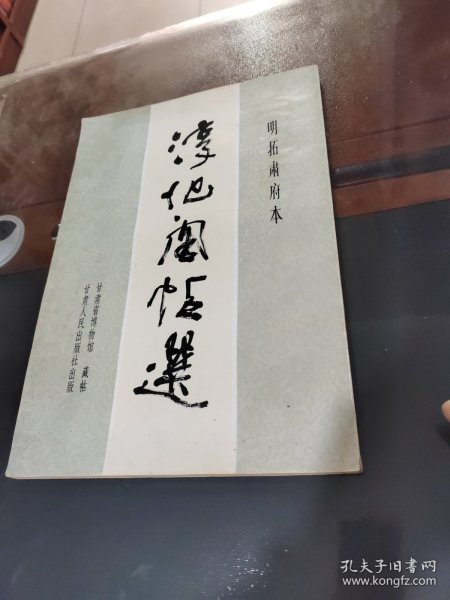 明拓肃府本
淳化阁帖选
甘肃省博物馆 藏帖
甘肃人民出版社出版
孔夫子旧书网
www.kongfz.com